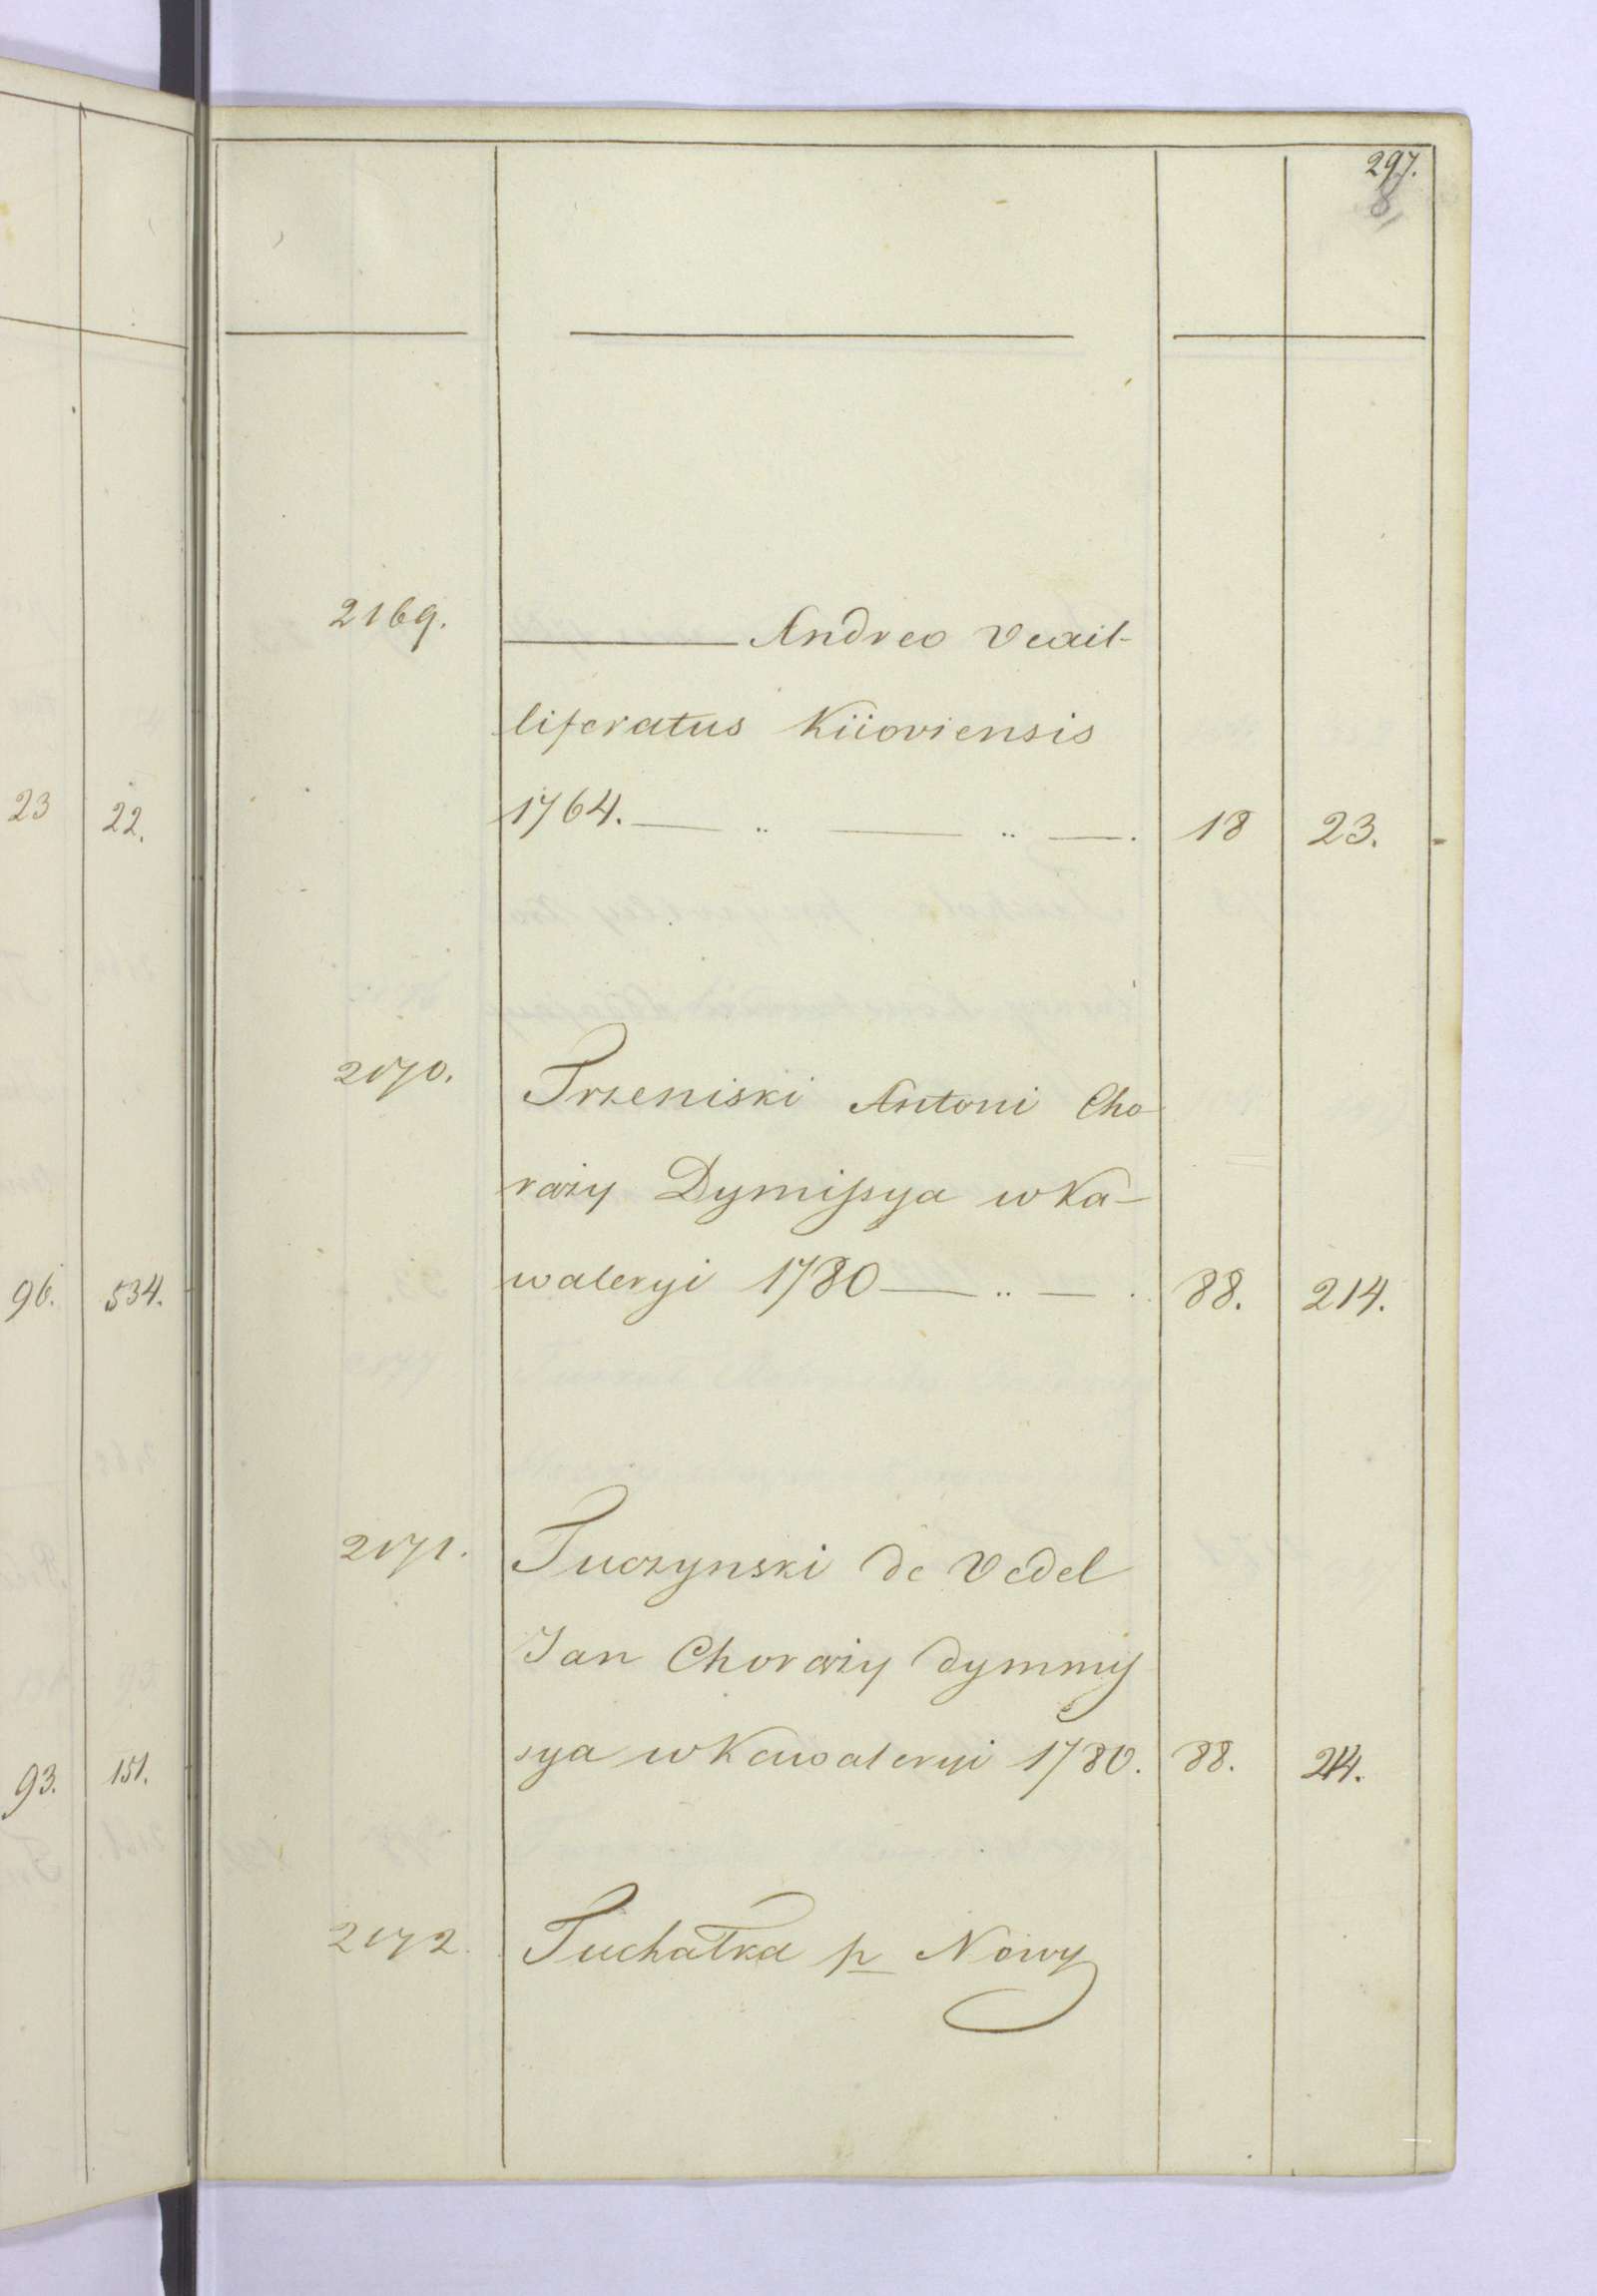 297.
8
2169. ——— Andreo Vexil-
liferatus Kiioviensis
1764. — .. — .. — . 18 23.
2170. Trzeniski Antoni Cho-
rąży Dymissya w Ka-
waleryi 1780 — .. — . 88. 214.
2171. Tuczynski de Vedel
Jan Chorąży dymmis
sya w Kawaleryi 1780. 88. 214.
2172. Tuchałka p Nowy
23 22.
96. 534.
93. 151.